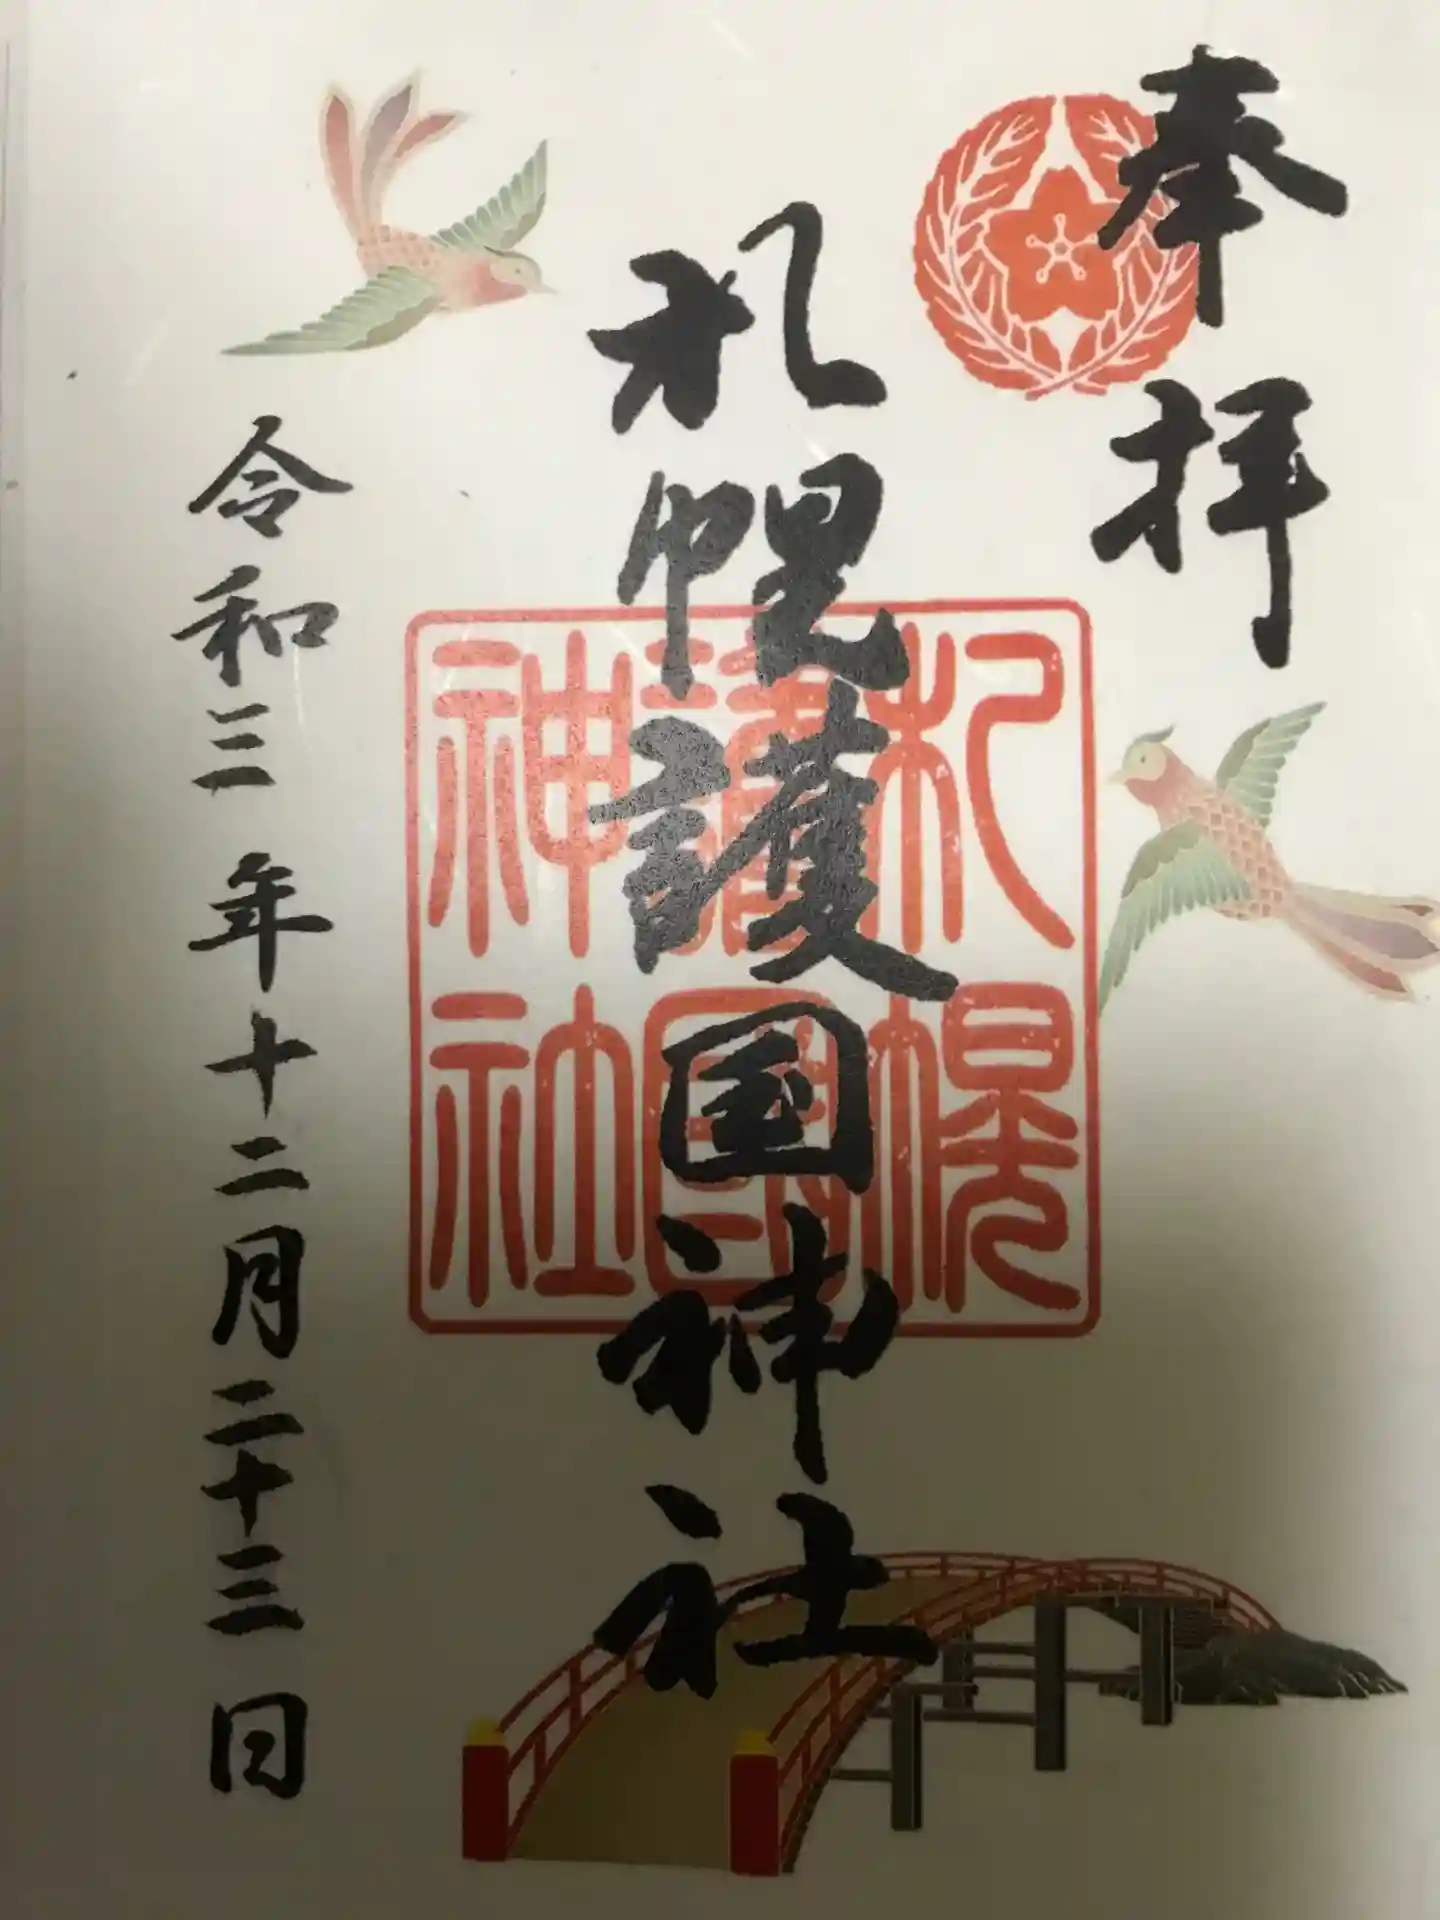 奉拝
札幌護国神社
札幌
護國
神社
令和三年十二月二十三日